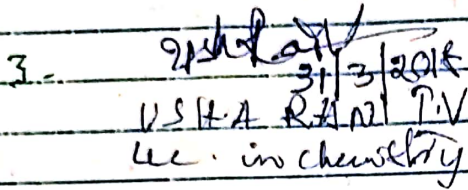 3.
31/3/2015
USHA RANI P.V
Lec. in chemistry